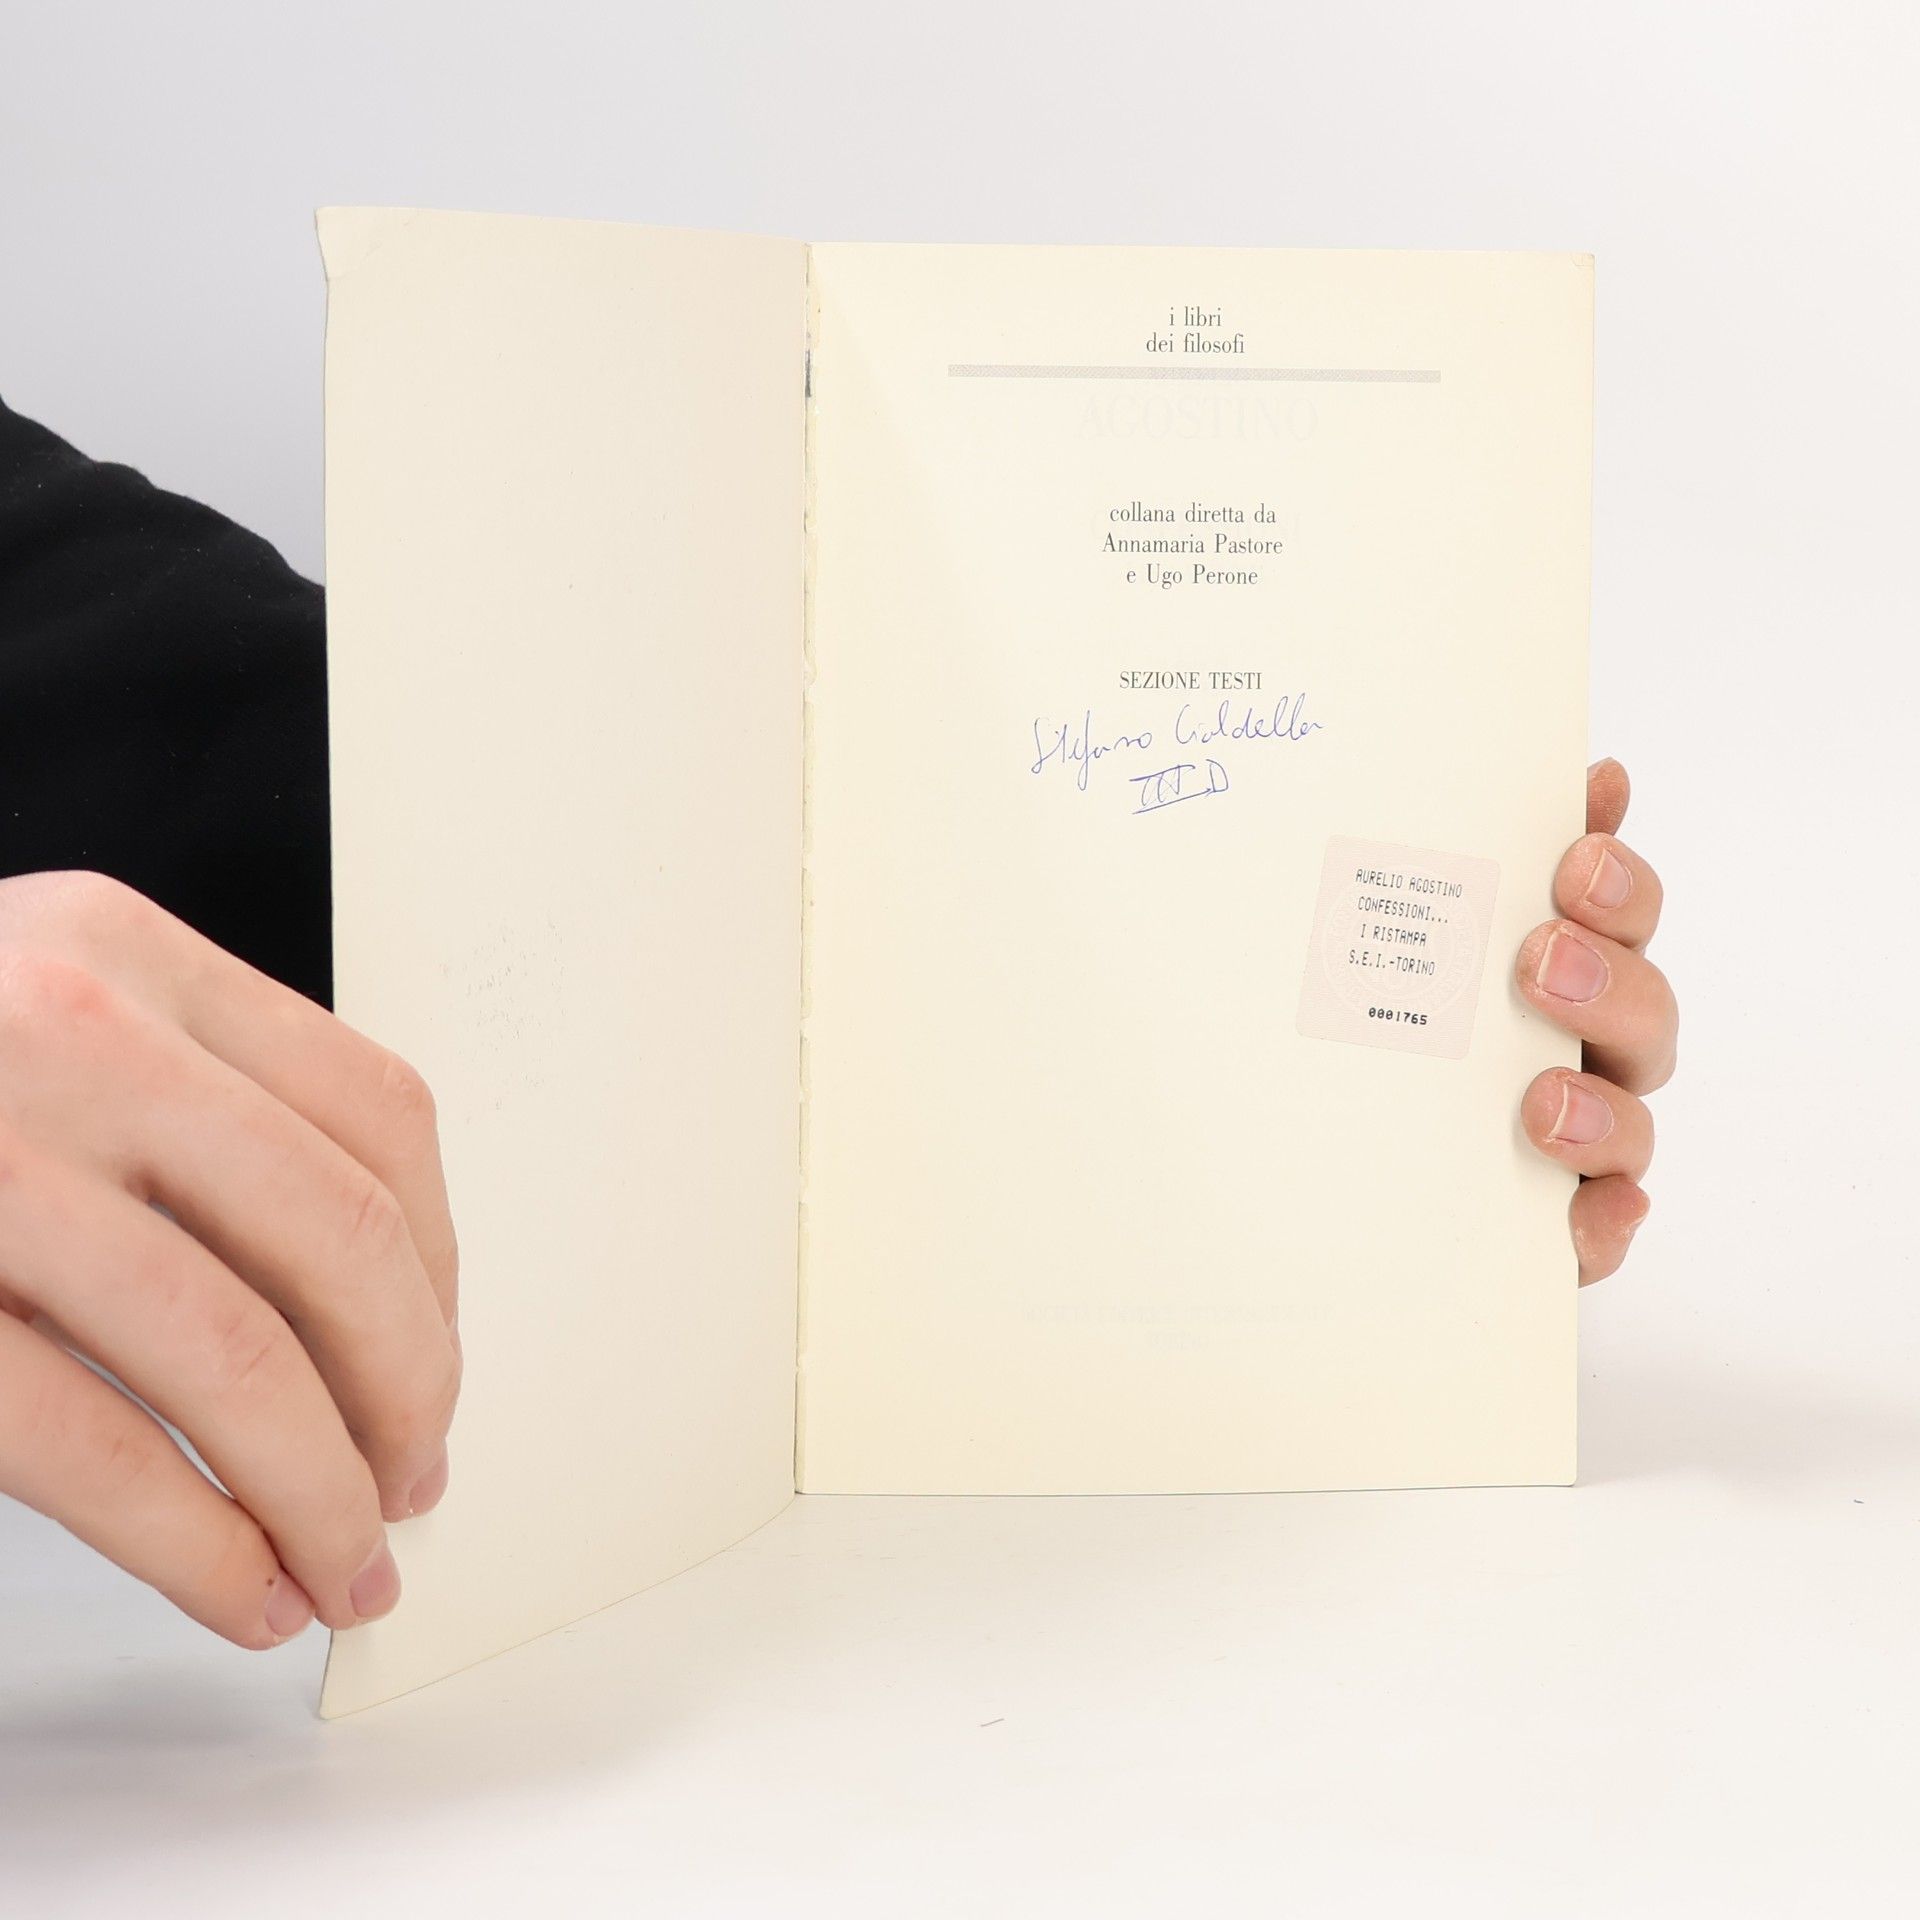 i libri
dei filosofi
AGOSTINO
collana diretta da
Annamaria Pastore
e Ugo Perone
SEZIONE TESTI
Stefano Cialdella
III D
AURELIO AGOSTINO
CONFESSIONI...
I RISTAMPA
S.E.I.-TORINO
0001765